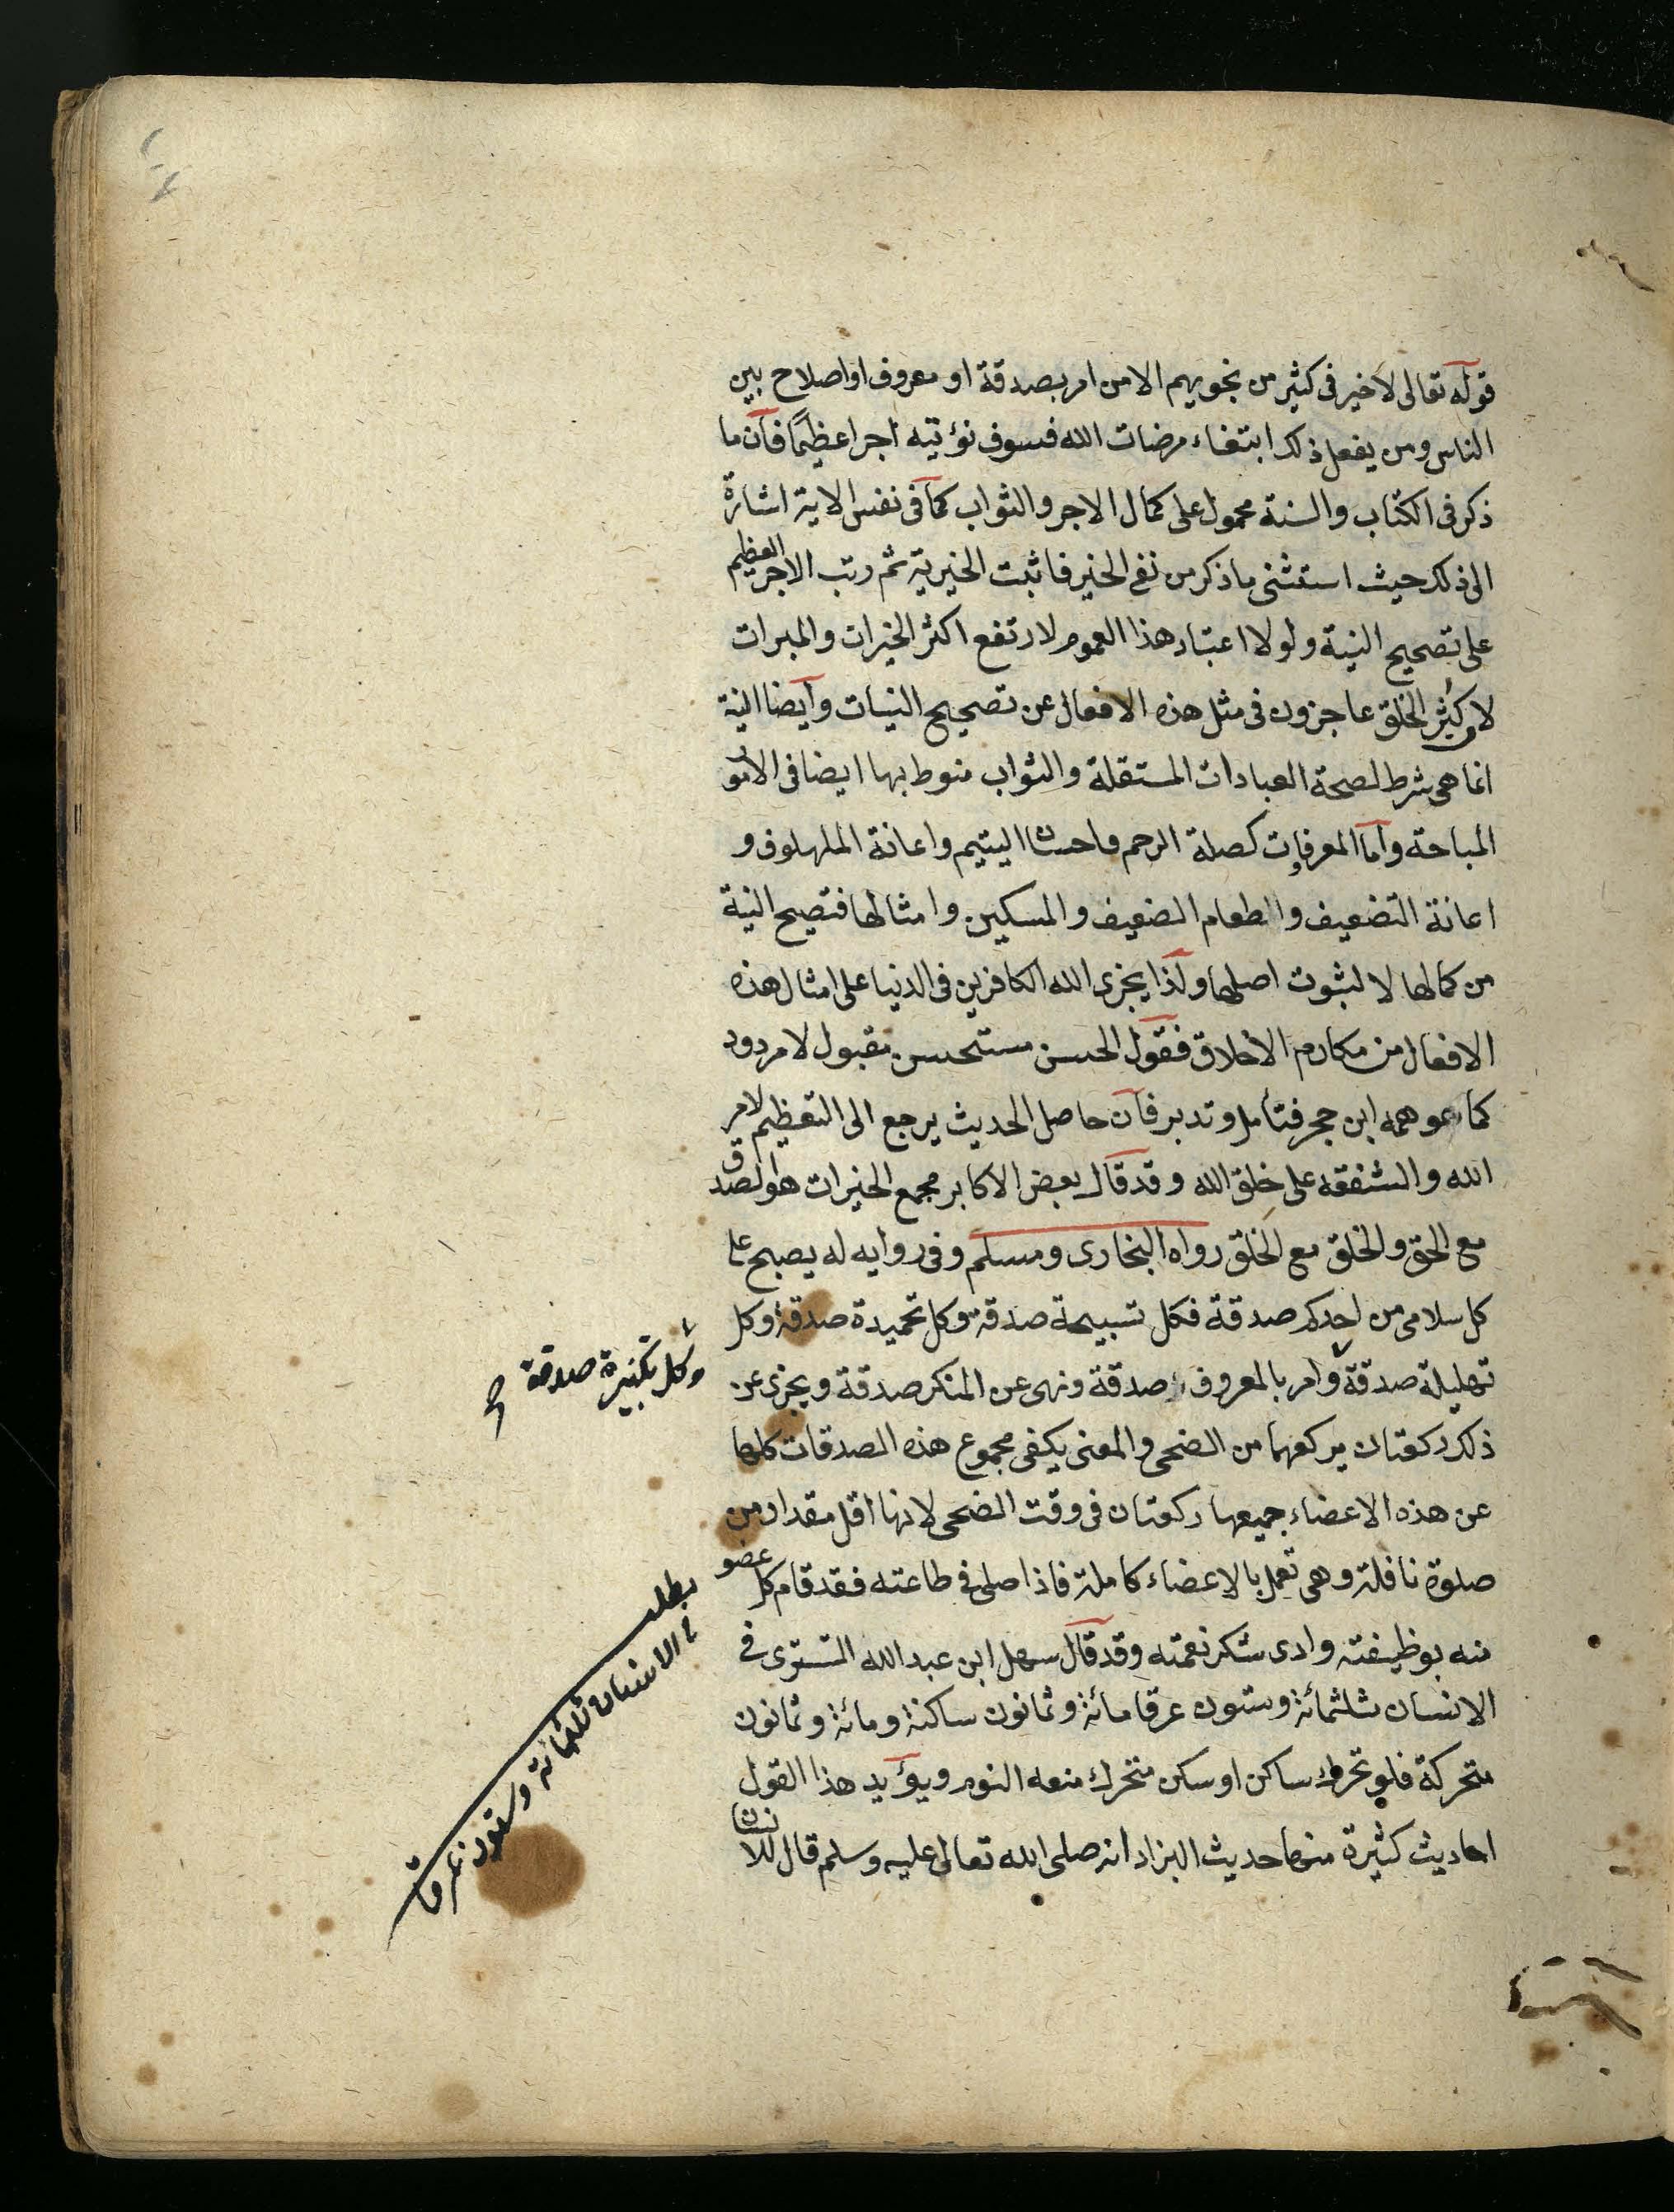 قوله تعالى لا خير فى كثير من نجويهم الا من امر بصدقة او معروف او اصلاح بين
الناس ومن يفعل ذلك ابتغاء مرضات الله فسوف نؤتيه اجرا عظيمًا فان ما
ذكر فى الكتاب والسنة محمول على كمال الاجر والثواب كما فى نفس الاية اشارة
الى ذلك حيث استثنى ما ذكر من نفى الخير فاثبت الخيرية ثم رتب الاجر العظيم
على تصحيح النية ولولا اعتبار هذا العموم لارتفع اكثر الخيرات والمبرات
لا كثر الخلق عاجزون فى مثل هذه الافعال عن تصحيح النيات وايضا النية
انما هى شرط لصحة العبادات المستقلة والثواب منوط بها ايضا فى الامور
المباحة واما المعرفات كصلة الرحم واحسان اليتيم واعانة الملهوف و
اعانة التضعيف والطعام الضعيف والمسكين وامثالها فتصيح النية
من كمالها لا لثبوت اصلها ولذا يجزى الله الكافرين فى الدنيا على امثال هذه
الافعال من مكارم الاخلاق فقول الحسن مستحسن مقبول لا مردود
كما عموهمه ابن حجر فتأمل وتدبر فان حاصل الحديث يرجع الى التعظيم لامر
الله والشفقه على خلق الله وقد قال بعض الاكابر مجمع الخيرات هو الصدق
مع الحق والخلق مع الخلق رواه البخارى ومسلم وفى روايه له يصبح على
كل سلامى من احدكم صدقة فكل تسبيحة صدقة وكل تحميدة صدقة وكل
تهليلة صدقة وامر بالمعروف صدقة ونهى عن المنكر صدقة ويجزى عن
وكل تكبيرة صدقة صح
ذلك ركعتان يركعهما من الضحى والمعنى يكفى مجموع هذه الصدقات كلها
عن هذه الاعضاء جميعها ركعتان فى وقت الضحى لانها اقل مقدار من
صلوة نافلة وهى تعمل بالاعضاء كاملة فاذا صلى فى طاعته فقد قام كل عضو
منه بوظيفته وادى شكر نعمته وقد قال سهل ابن عبد الله التسترى فى
الانسان ثلثمائة وستون عرقا مائة وثمانون ساكنة ومائة وثمانون
متحركة فلو تحرك ساكن او سكن متحرك منعه النوم ويؤيد هذا القول
احاديث كثيرة منها حديث البزار انه صلى الله تعالى عليه وسلم قال للانسان
مطلب
فى الانسان ثلثمائة وستون عرقا